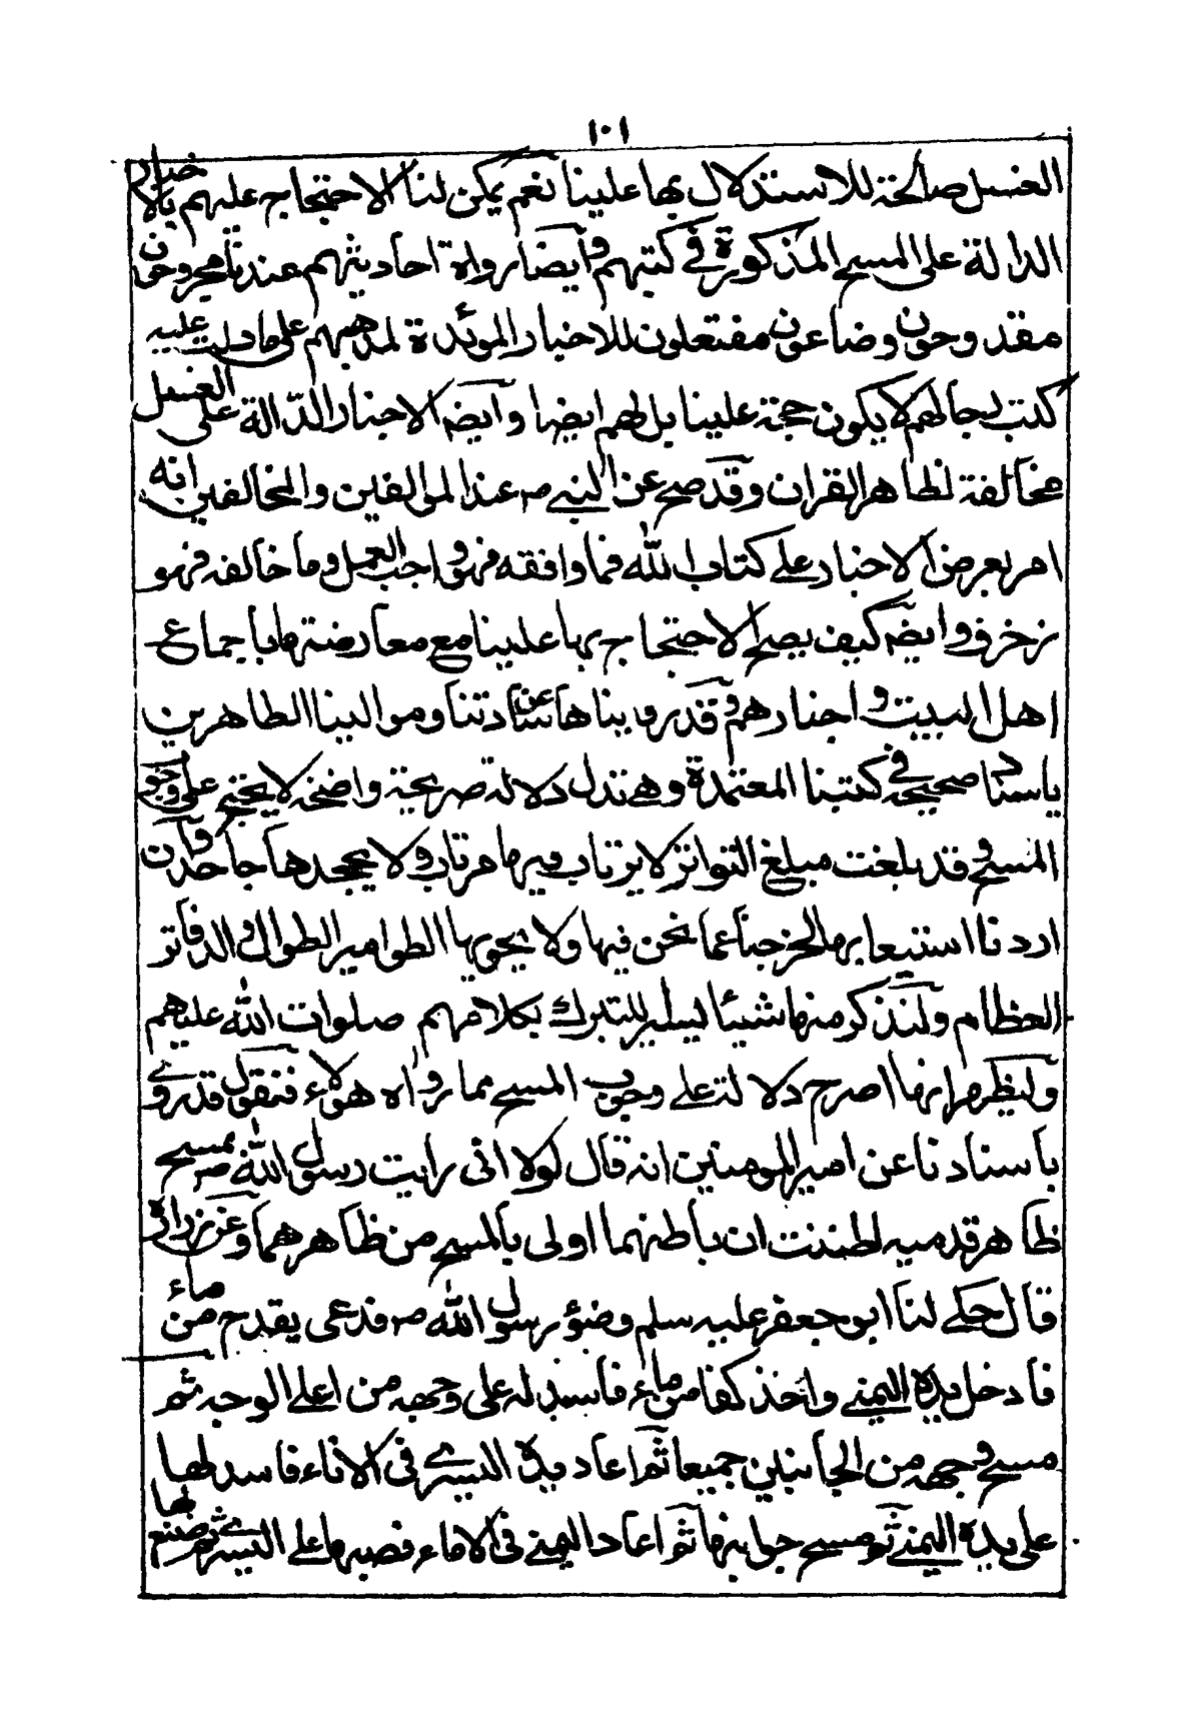 ١٠١
الغسل صالحة للاستدلال بها علينا نعم يمكن لنا الاحتجاج عليهم بالاخبار
الدالة على المسح المذكورة في كتبهم وايضا رواة احاديثهم عندنا مجروحون
مقدوحون وضاعون مفتعلون للاخبار الموئدة لمذهبهم على ما دلت عليه
كتب رجالهم لا يكون حجة علينا بل لهم ايضا وايضه الاخبار الدّالة على الغسل
مخالفة لظاهر القران وقد صح عن النبي ص عند الموالفين والمخالفين انه
امر بعرض الاخبار على كتاب الله فما وافقه فهو واجب العمل وما خالفه فهو
زخرف وايضه كيف يصح الاحتجاج بها علينا مع معارضتها باجماع
اهل البيت واخبارهم وقد روينا ها عن ساداتنا وموالينا الطاهرين
باسناد صحيحة في كتبنا المعتمدة وهي تدل دلالة صريحة واضحة لا يختم على وجوب
المسح وقد بلغت مبلغ التواتر لا يرتاب فيها مرتاب ولا يجحدها جاحد وان
اردنا استيعابها لخرجنا عما نحن فيها ولا يحويها الطوامير الطوال والدفاتر
العظام ولنذكر منها شيئا يسيرا للتبرك بكلامهم صلوات الله عليهم
وليظهر انها اصرح دلالة على وجوب المسح مما رواه هؤلاء فنقول قد روي
باسنادنا عن امير المومنين انه قال لولا انى رايت رسول الله ص يمسح
ظاهر قدميه لظننت ان باطنهما اولى بالمسح من ظاهرهما وعن زرارة
قال حكى لنا ابو جعفر عليه سلم وضؤ رسول الله ص فدعى بقدح من ماء
فادخل يده اليمنى واخذ كفا من ماء فاسدله على وجهه من اعلى الوجه ثم
مسح وجهه من الجانبين جميعا ثم اعاد يده اليسرى في الاناء فاسدلها
على يده اليمنى ثم مسح جوانبها ثم اعاد اليمنى في الاناء فصبها على اليسرى ثم صنع بها